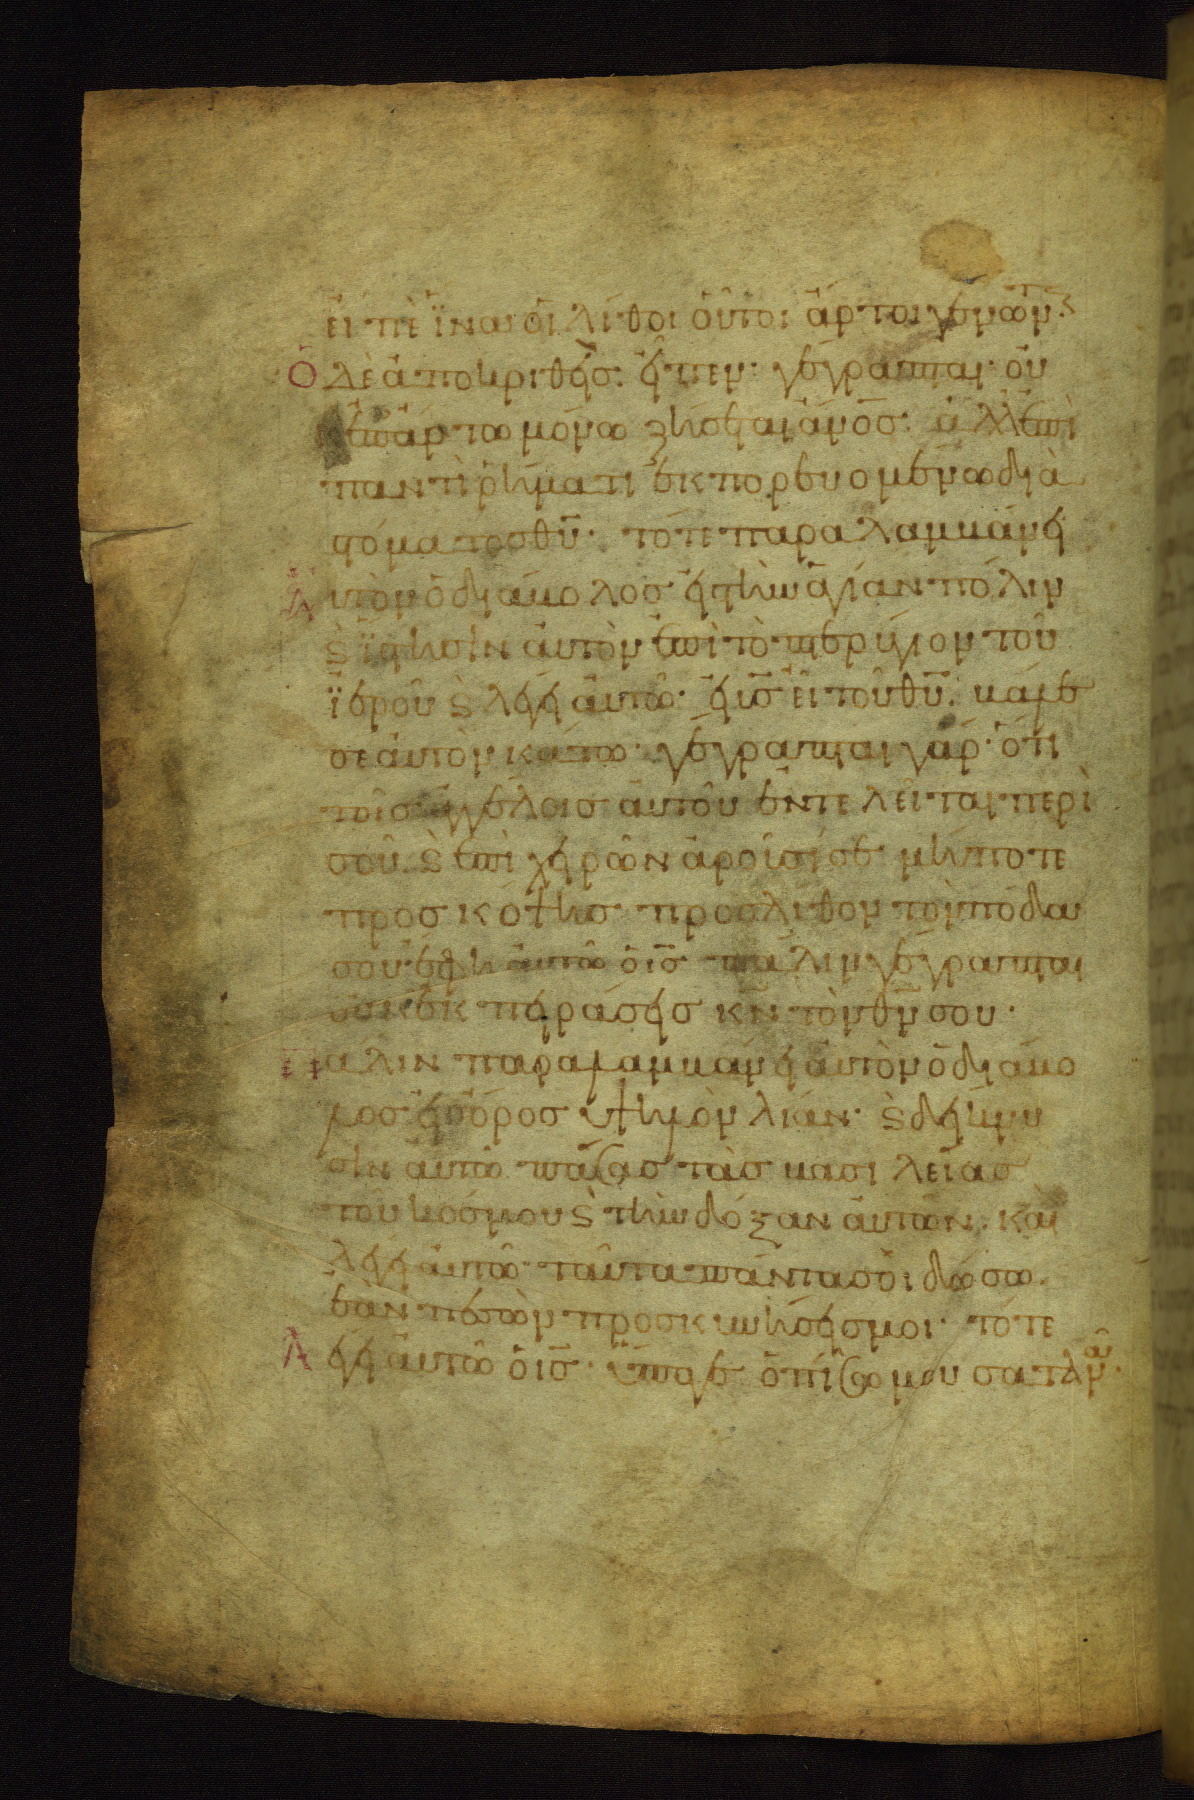 εἰπὲ ἵνα οἱ λίθοι οὗτοι ἄρτοι γένωντ
Ὁ δὲ ἀποκριθεὶς εἶπεν· γέγραπται· οὐκ
ἐπ ἄρτω μόνω ζήσεται ἀνος· ἀλλ ἐπὶ
παντὶ ῥήματι ἐκπορευομένω διὰ
στόματος θυ· τότε παραλαμβάνει
Αυτὸν ὁ διάβολος εἰς τὴν ἁγίαν πόλιν
ϗ ἵστησιν ἀυτὸν ἐπὶ τὸ πτερύγιον τοῦ
ἱεροῦ ϗ λέγει ἀυτῶ· εἰ υς εἶ τοῦ θυ· βάλε
σεαυτὸν κάτω· γέγραπται γάρ· ὅτι
τοῖς ἀγγέλοις ἀυτοῦ ἐντελεῖται περὶ
σοῦ· ϗ ἐπὶ χειρῶν ἀροῦσί σε· μήποτε
προσκόψης προς λίθον τὸν πόδα
σου· ἔφη ἀυτῶ ὁ ις· πάλιν γέγραπται
οὐκ ἐκπειράσεις κν τὸν θν σου·
Πάλιν παραλαμβάνει ἀυτὸν ὁ διάβο
λος εἰς ὄρος ὑψηλὸν λίαν· ϗ δείκνυ
σιν ἀυτῶ πάσας τὰς βασιλείας
τοῦ κόσμου ϗ τὴν δόξαν ἀυτῶν· και
λέγει ἀυτῶ· ταῦτα πάντα σοι δώσω
ἐὰν πεσὼν προσκυνήσεις μοι· τότε
Λέγει ἀυτῶ ὁ ις· ὕπαγε ὀπίσω μου σατανᾶ·